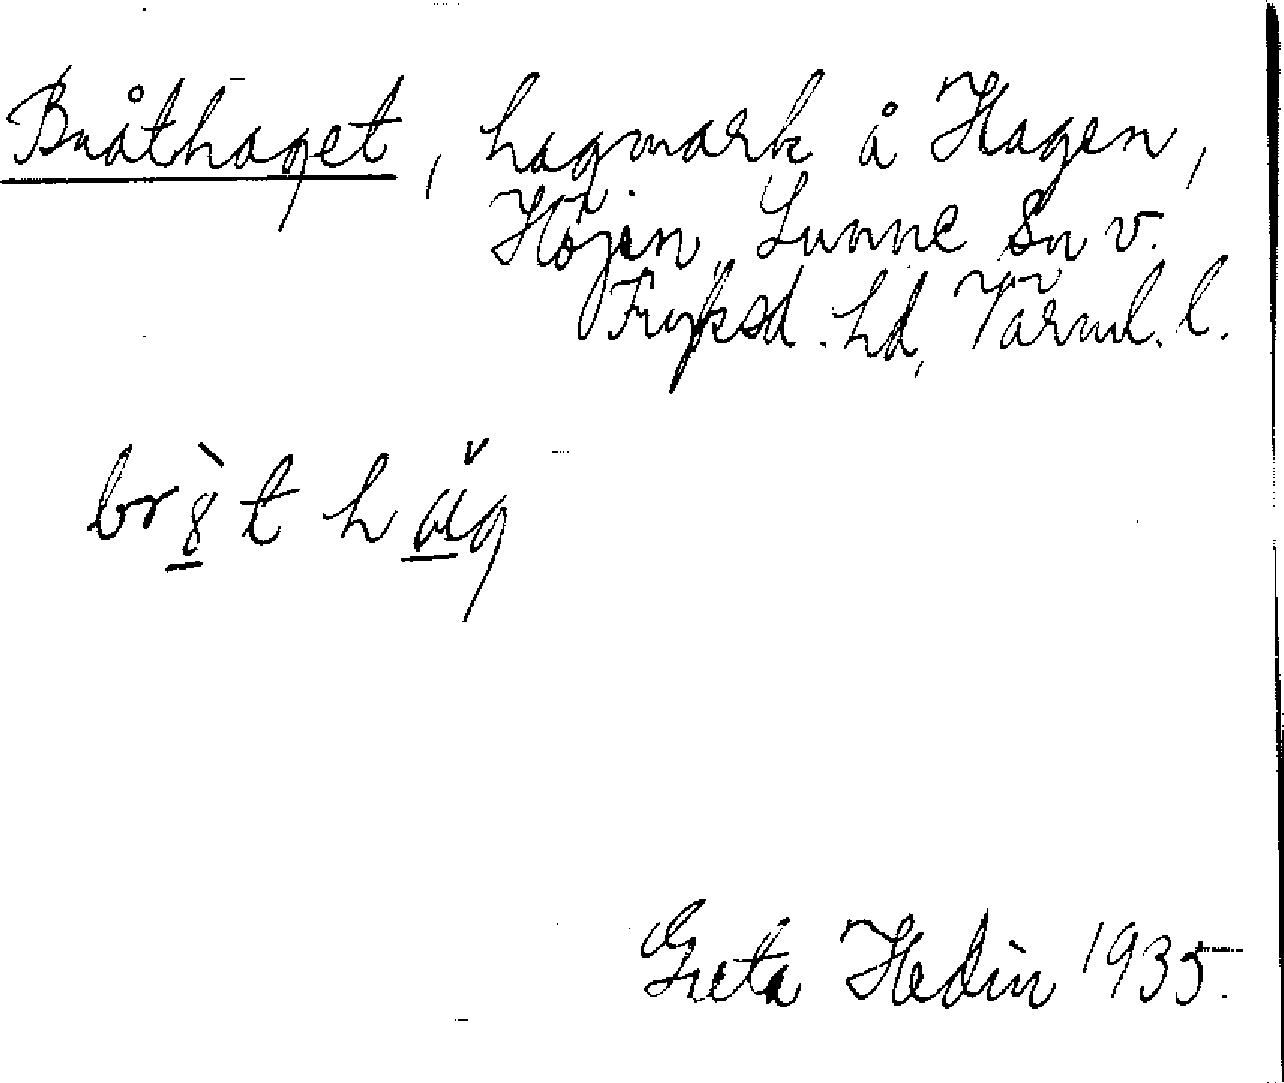 Bråthaget, hagmark å Hagen,
Höjen, Sunne sn v.
Fryksd. hd, Värml. l.
br8̱̀t hǎ̱g
Greta Hedin 1935.